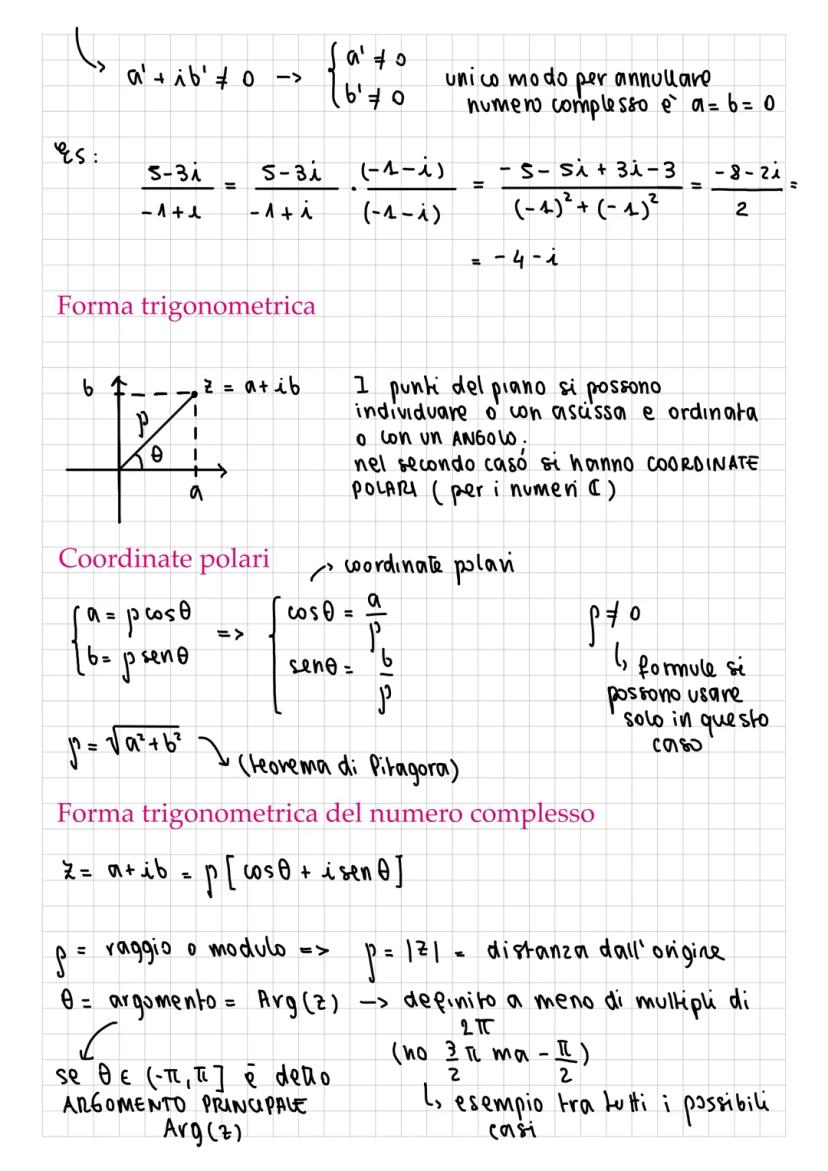 a' + ib' ≠ 0 -> { a' ≠ 0 unico modo per annullare
b' ≠ 0 numero complesso è a = b = 0
es:
5-3i / -1+i = 5-3i / -1+i · (-1-i) / (-1-i) = -5-5i+3i-3 / (-1)² + (-1)² = -8-2i / 2 =
= -4-i
Forma trigonometrica
b z = a+ib I punti del piano si possono
ρ individuare o con ascissa e ordinata
θ o con un ANGOLO.
nel secondo caso si hanno COORDINATE
a POLARI (per i numeri ℂ)
Coordinate polari
coordinate polari
{ a = ρ cosθ => { cosθ = a/ρ ρ ≠ 0
b = ρ senθ senθ = b/ρ formule si
possono usare
solo in questo
caso
ρ = √a²+b²
(teorema di Pitagora)
Forma trigonometrica del numero complesso
z = a+ib = ρ[cosθ + i senθ]
ρ = raggio o modulo => ρ = |z| = distanza dall'origine
θ = argomento = Arg(z) -> definito a meno di multipli di
2π
(no 3/2 π ma - π/2)
se θ ∈ (-π, π] è detto
ARGOMENTO PRINCIPALE
Arg(z)
esempio tra tutti i possibili
casi